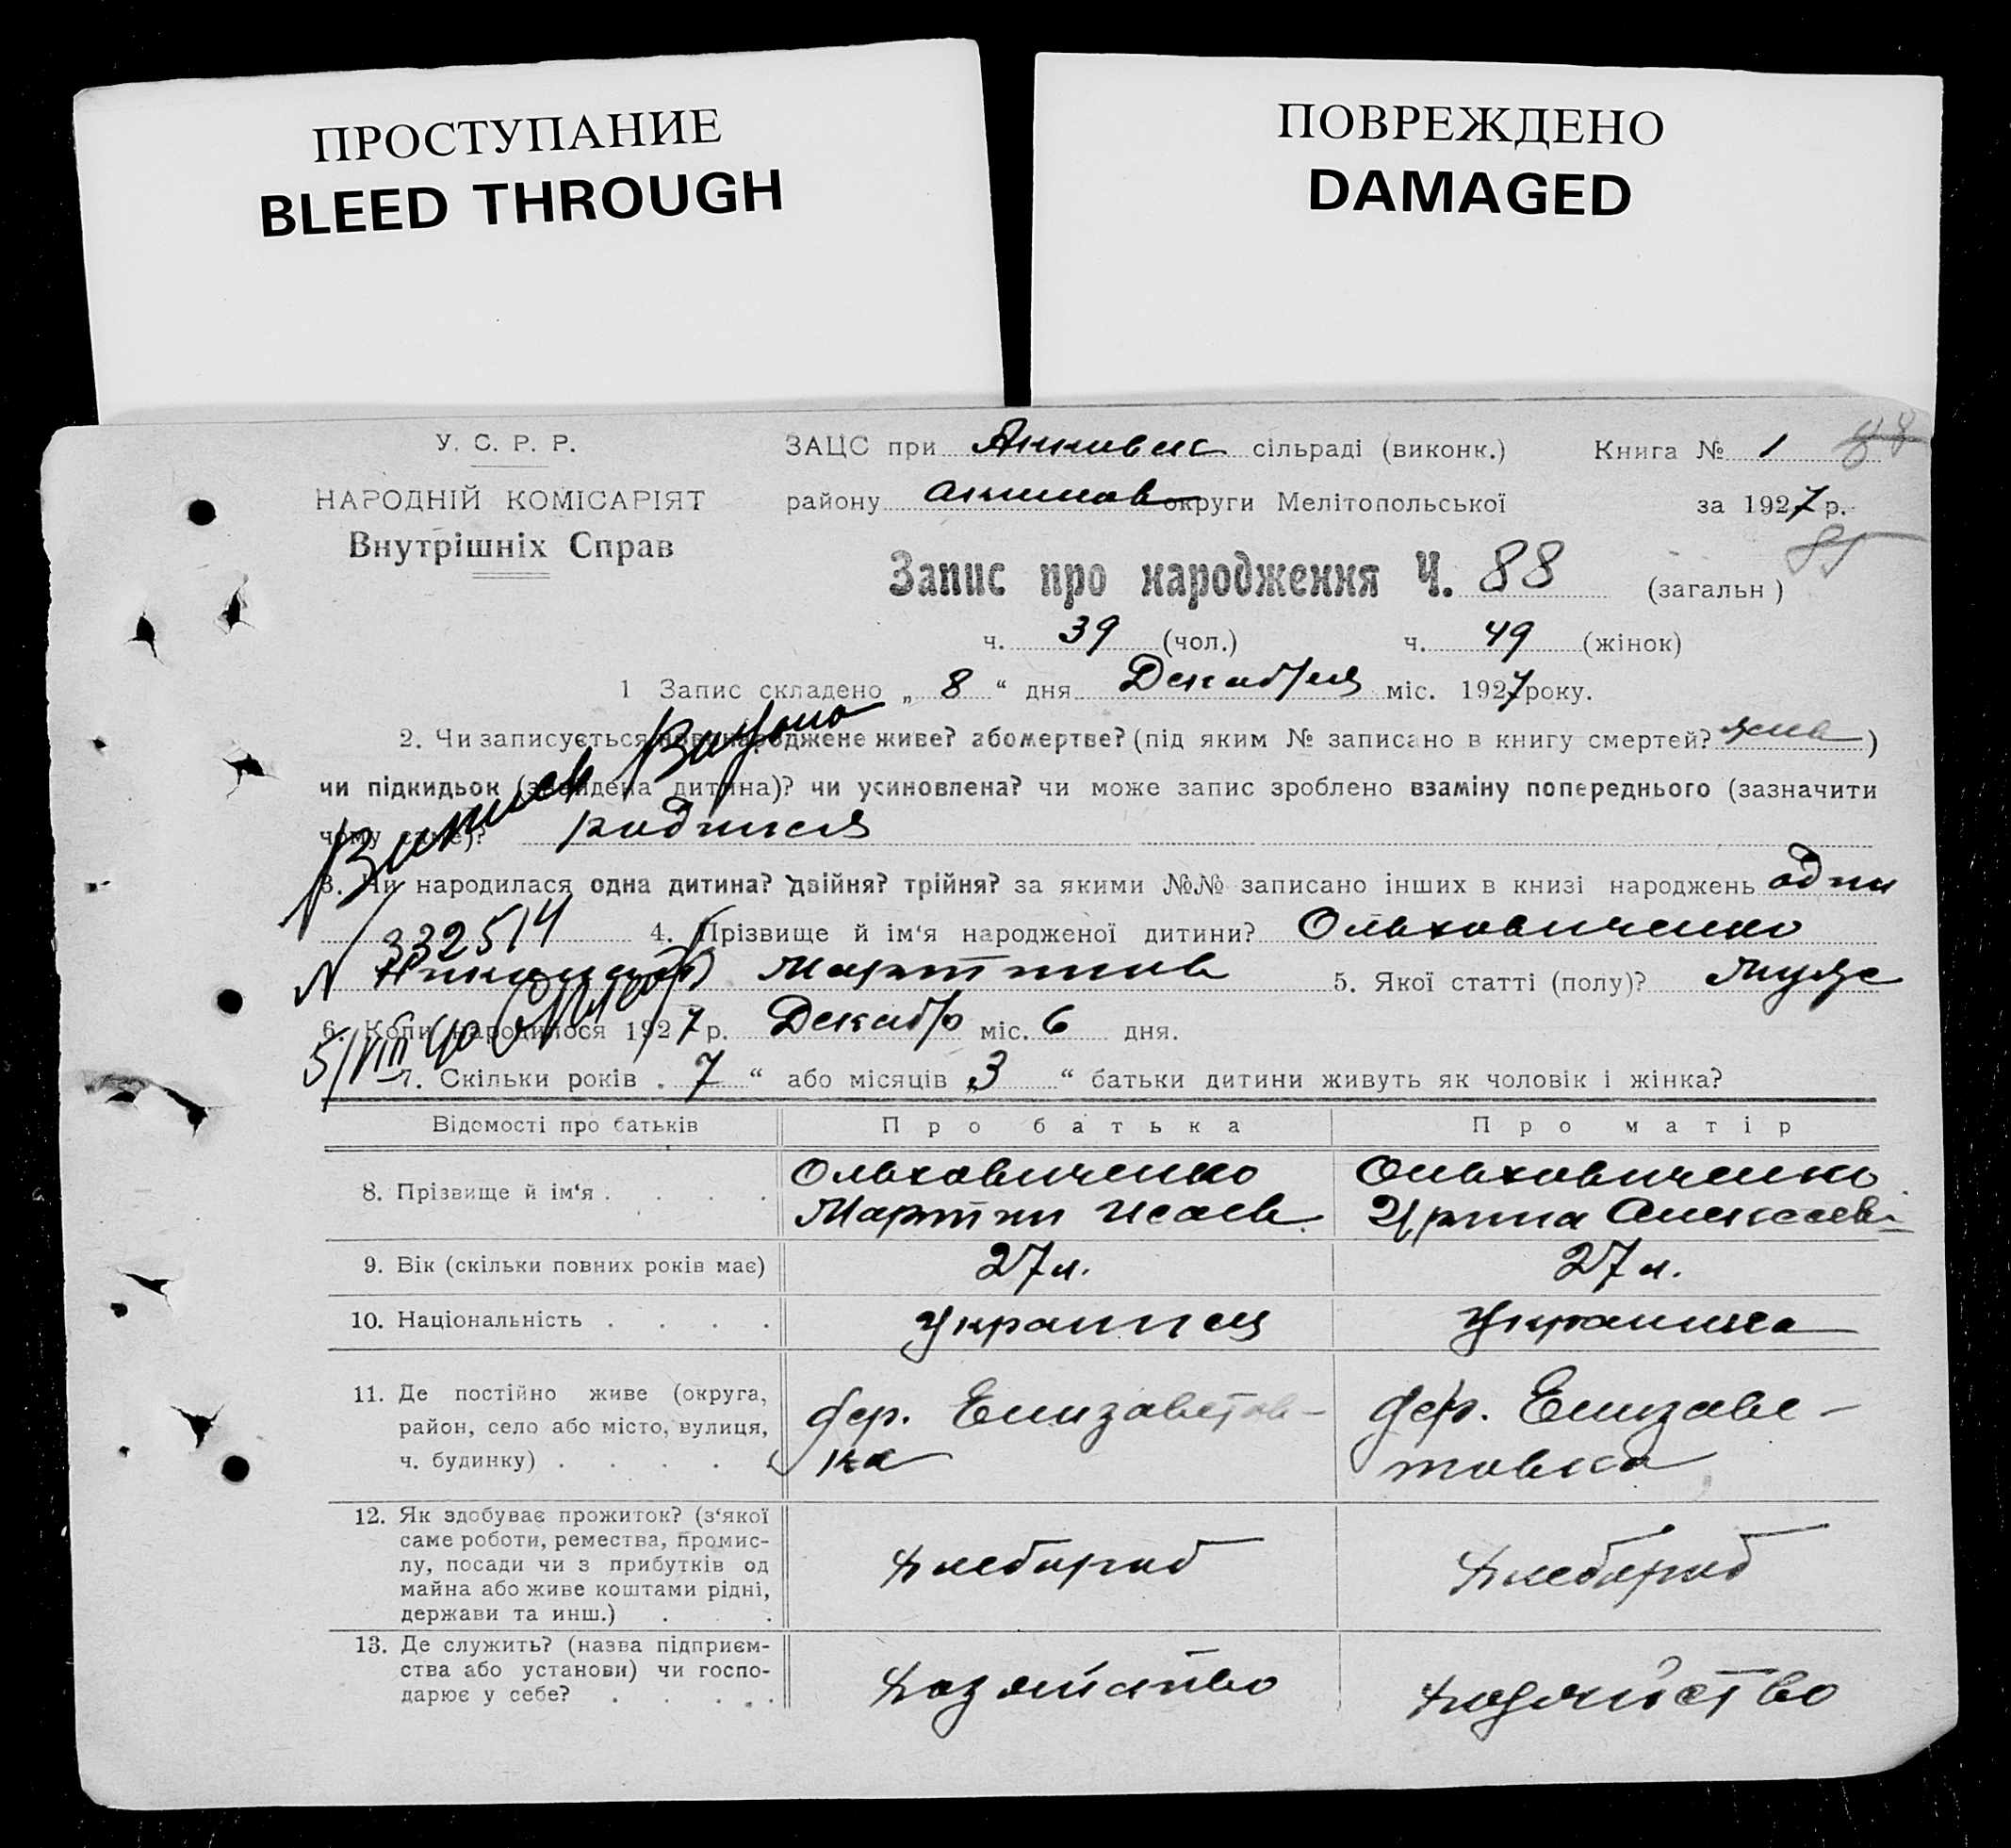 ПРОСТУПАНИЕ
BLEED THROUGH
ПОВРЕЖДЕНО
DAMAGED
У. С. Р. Р.
НАРОДНІЙ КОМІСАРІЯТ
Внутрішніх Справ
ЗАЦС при сільраді (виконк.) Книга № 1
району Акимов округи Мелітопольської за 1927 р.
Запис про народження Ч. 88 (загальн)
ч. 39 (чол.) ч. 49 (жінок)
1 Запис складено „ 8 “ дня Декабря міс. 1927 року.
2. Чи записується новонароджене живе? або мертве? (під яким № записано в книгу смертей? жив)
чи підкидьок (знайдена дитина)? чи усиновлена? чи може запис зроблено взаміну попереднього (зазначити
чому саме)? родился
3. Чи народилася одна дитина? двійня? трійня? за якими №№ записано інших в книзі народжень один
4. Прізвище й ім‘я народженої дитини? Ольховиченко
Мартинов 5. Якої статті (полу)? Муже
6. Коли народилося 1927 р. Декабр міс. 6 дня.
7. Скільки років „ 7 “ або місяців „ 3 “ батьки дитини живуть як чоловік і жінка?
Выписка Выдана
№ 332514
5/VIII 40
Відомості про батьків Про батька Про матір
8. Прізвище й ім‘я . . . . Ольховиченко Ольховиченко
Мартин Исаев. Ирина Алексеев.
9. Вік (скільки повних років має) 27 л. 27 л.
10. Національність . . . . Украинец Украинка
11. Де постійно живе (округа,
район, село або місто, вулиця,
ч. будинку) . . . . .
дер. Елизаветов-
ка
дер. Елизаве-
товка
12. Як здобуває прожиток? (з‘якої
саме роботи, ремества, промис-
лу, посади чи з прибутків од
майна або живе коштами рідні,
держави та инш.) . . .
Хлебороб Хлебороб
13. Де служить? (назва підприєм-
ства або установи) чи госпо-
дарює у себе? . . . . .
Хозяйство Хозяйство